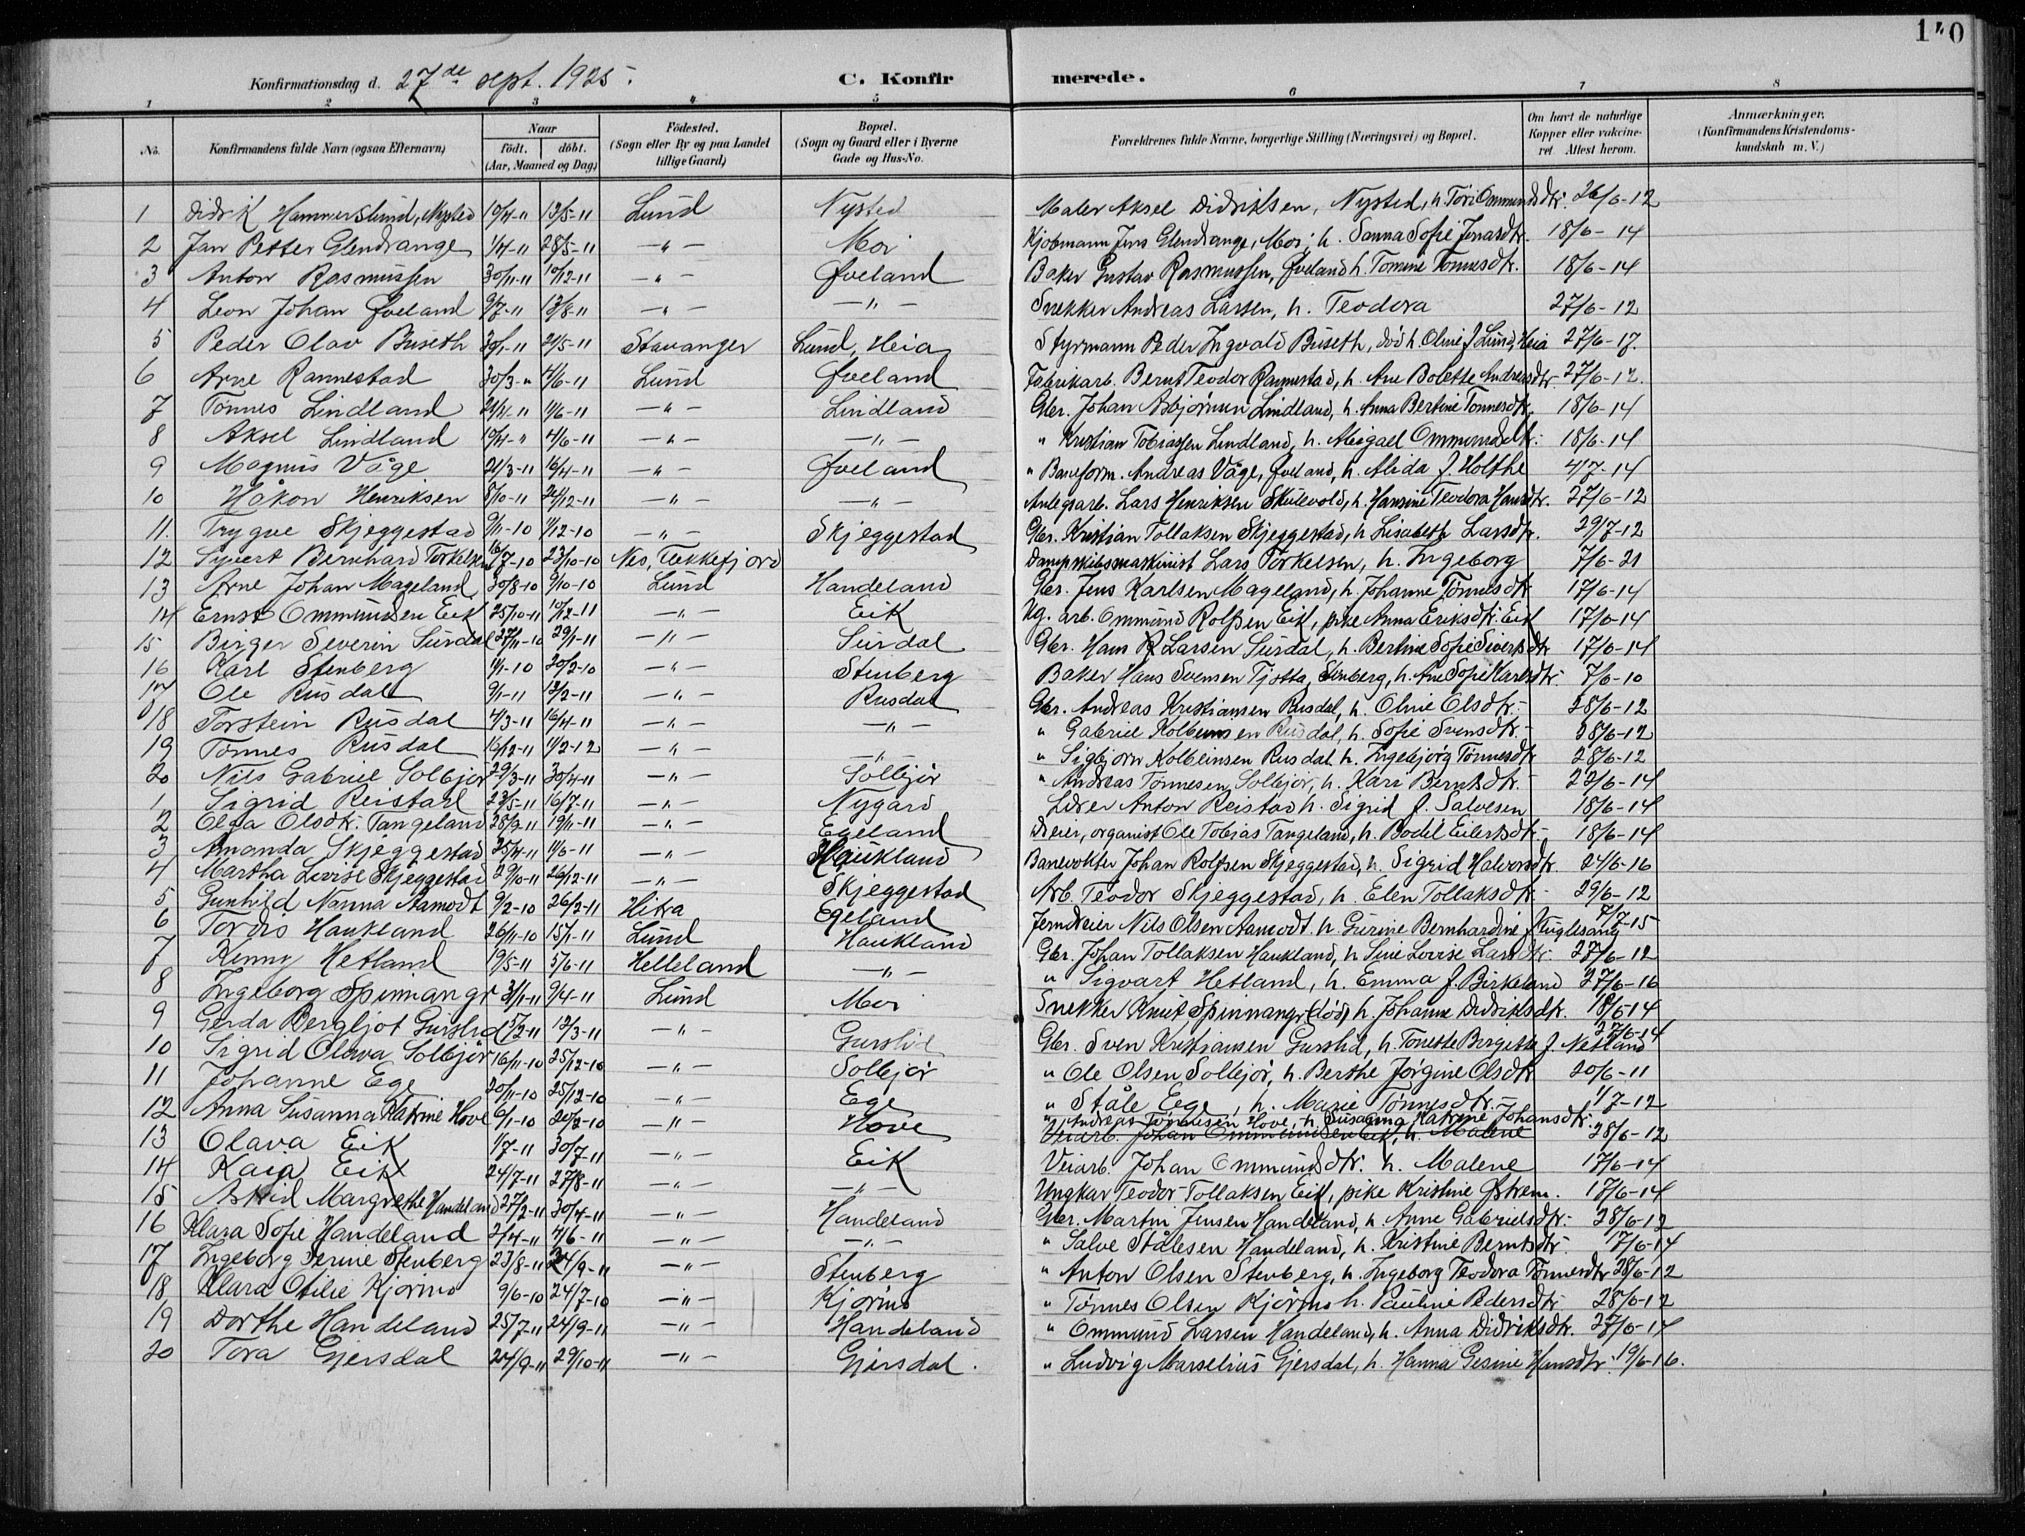 1 0
Konfirmationsdag d. 27de sept. 1925.
C. Konfir merede.
1 2 3 4 5 6 7 8
No. Konfirmandens fulde Navn (ogsaa Efternavn) Naar født. døbt. (Aar, Maaned og Dag) Fødested. (Sogn eller By og paa Landet tillige Gaard) Bopæl. (Sogn og Gaard eller i Byerne Gade og Hus-No. Forældrenes fulde Navne, borgerlige Stilling (Næringsvei) og Bopæl. Om havt de naturlige Kopper eller vakcineret. Attest herom. Anmærkninger. (Konfirmandens Kristendomskundskab m. V.)
1 Didrik Hammerslund, Nysted 10/4-11 13/5-11 Lund Nysted Maler Aksel Didriksen, Nysted, h. Tori Ommundsdtr. 26/6-12
2 Jan Petter Glendrange 1/4-11 28/5-11 —"— Moi Kjøbmann Jens Glendrange, Moi, h. Sanna Sofie Jonasdtr. 18/6-14
3 Anton Rasmussen 30/11-11 10/12-11 —"— Øveland Baker Gustav Rasmussen, Øveland h. Tomine Tønnesdtr. 18/6-14
4 Leon Johan Øveland 9/7-11 13/8-11 —"— —"— Snekker Andreas Larsen, h. Teodora 27/6-12
5 Peder Olav Buseth 30/1-11 21/5-11 Stavanger Lund, Heia Styrmann Peder Ingvald Buseth, død h. Oline f. Lund, Heia 27/6-17.
6 Arne Rannestad 30/3-" 4/6-11 Lund Øveland Fabrikarb. Bernt Teodor Rannestad, h. Ane Bolette Andreasdtr. 27/6-12.
7 Tønnes Lindland 24/4-11 11/6-11 —"— Lindland Gbr. Johan Asbjørnsen Lindland, h. Anna Bertine Tønnesdtr. 18/6-14
8 Aksel Lindland 10/4-" 4/6-11 —"— —"— " Kristian Tobiassen Lindland, h. Abigael Ommundsdtr. 18/6-14
9 Magnus Våge 21/3-11 16/4-11 —"— Øveland " Baneform. Andreas Våge, Øveland, h. Alida f. Holthe 4/7-14
10 Håkon Henriksen 8/10-11 24/12-11 —"— —"— Anlegsarb. Lars Henriksen Skulevold, h. Hansine Teodora Hansdtr. 27/6-12
11. Trygve Skjeggestad 9/11-10 11/12-10 —"— Skjeggestad Gbr. Kristian Tollaksen Skjeggestad, h. Lisabeth Larsdtr. 29/7-12
12 Syvert Bernhard Torkelsen 16/7-10 23/10-10 Nes, Flekkefjord Dampskibsmaskinist Lars Torkelsen, h. Ingeborg 7/6-21
13 Arne Johan Mageland 30/8-10 9/10-10 Lund Handeland Gbr. Jens Karlsen Mageland, h. Johanne Tønnesdtr 17/6-14
14 Ernst Ommundsen Eik 25/10-11 10/12-11 —"— Eik Ug. arb. Ommund Rolfsen Eik, pike Anna Eriksdtr. Eik 17/6-14
15 Birger Severin Surdal 27/11-10 29/1-11 —"— Surdal Gbr. Hans R Larsen Surdal, h. Bertine Sofie Sivertsdtr 17/6-14
16 Karl Stenberg 1/1-10 20/2-10 —"— Stenberg Baker Hans Svensen Tjotta, Stenberg, h. Ane Sofie Karlsdtr. 7/6-10
17 Ole Rusdal 9/1-11 12/2-11 —"— Rusdal Gbr. Andreas Kristiansen Rusdal, h. Oline Olsdtr. 28/6-12
18 Torstein Rusdal 4/3-11 16/4-11 —"— —"— " Gabriel Kolbeinsen Rusdal, h. Sofie Svensdtr. 28/6-12
19 Tønnes Rusdal 16/12-11 11/2-12 —"— —"— " Sigbjørn Kolbeinsen Rusdal h. Ingebjørg Tønnesdtr 28/6-12
20 Nils Gabriel Solbjør 29/3-11 30/4-11 —"— Solbjør " Andreas Tønnesen Solbjør, h. Kari Berntsdtr. 22/6-14
1 Sigrid Reistad 23/5-11 16/7-11 —"— Nygård Lærer Anton Reistad h. Sigrid f. Salvesen 18/6-14
2 Olga Olsdtr. Tangeland 28/9-11 19/11-11 —"— Egeland Dreier, organist Ole Tobias Tangeland, h. Bodil Eilertsdtr. 18/6-14
3 Amanda Skjeggestad 25/4-11 11/6-11 —"— Haukland Banevokter Johan Rolfsen Skjeggestad, h. Sigrid Halvorsdtr. 24/6-16
4 Martha Lovise Skjeggestad 29/10-11 26/12-11 —"— Skjeggestad Arb. Teodor Skjeggestad, h. Elen Tollaksdtr. 29/6-12
5 Gunhild Nanna Aamodt 9/2-10 26/2-11 Hitra Egeland Jerndreier Nils Olsen Aamodt. h. Gurine Bernhardine f. Fuglesang 7/7-15
6 Tordis Haukland 26/11-10 15/1-11 Lund Haukland Gbr. Johan Tollaksen Haukland, h. Sine Lovise Larsdtr. 27/6-12
7 Kenny Hetland 19/5-11 5/6-11 Helleland —"— " Sigvart Hetland, h. Emma f. Birkeland 27/6-16
8 Ingeborg Spinnangr 31/1-11 9/4-11 Lund Moi Snekker Knut Spinnangr (død) h. Johanne Didriksdtr. 18/6 14
9 Gerda Bergljot Gursli 1/2-11 12/3-11 —"— Gursli Gbr. Sven Kristiansen Gursli, h. Tonette Birgitte f. Netland 27/6-14
10 Sigrid Olava Solbjør 16/11-10 25/12-10 —"— Solbjør " Ole Olsen Solbjør, h. Berthe Jørgine Olsdtr 20/6-11
11 Johanne Ege 20/11-10 25/12-10 —"— Ege " Ståle Ege, h. Marie Tønnesdtr. 1/7-12
12 Anna Susanna Katrine Hove 6/1-10 20/2-10 —"— Hove " Andreas Tønnesen Hove, h. Susanna Katrine Johansdtr. 28/6-12
Veiarb. Johan Ommundsen Eik, h. Malene
13 Olava Eik 1/7-11 30/7-11 —"— Eik Veiarb. Johan Ommundsdtr. h. Malene 17/6-14
14 Kaia Eik 24/7-11 27/8-11 —"— —"— Ungkar Teodor Tollaksen Eik, pike Kristine Østrem. 17/6-14
15 Astrid Margrethe Handeland 27/2-11 30/4-11 —"— Handeland Gbr. Martin Jensen Handeland, h. Anne Gabrielsdtr. 28/6-12
16 Klara Sofie Handeland 2/4-11 4/6-11 —"— —"— " Salve Stålesen Handeland, h. Kristine Berntsdtr. 17/6-14
17 Ingeborg Serine Stenberg 23/8-11 24/9-11 —"— Stenberg " Anton Olsen Stenberg, h. Ingeborg Teodora Tønnesdtr 28/6-12
18 Klara Otilie Kjørmo 9/6-10 24/7-10 —"— Kjørmo " Tønnes Olsen Kjørmo h. Pauline Pedersdtr 28/6-12
19 Dorthe Handeland 25/7-11 24/9-11 —"— Handeland " Ommund Larsen Handeland, h. Anna Didriksdtr. 28/6-14
20 Tora Gjersdal 24/9-11 29/10-11 —"— Gjersdal. " Ludvig Marselius Gjersdal, h. Hanna Gesine Hansdtr. 19/6-16.